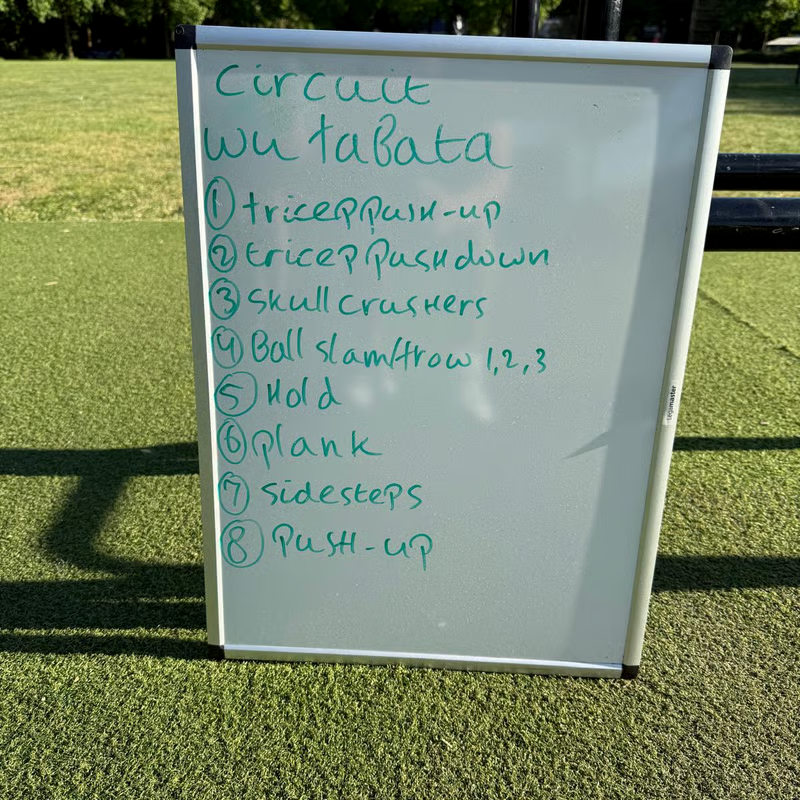 Circuit
WU taBata
① tricep push-up
② tricep pushdown
③ skull crushers
④ Ball slam/trow 1,2,3
⑤ Hold
⑥ plank
⑦ sidesteps
⑧ push-up
legamaster